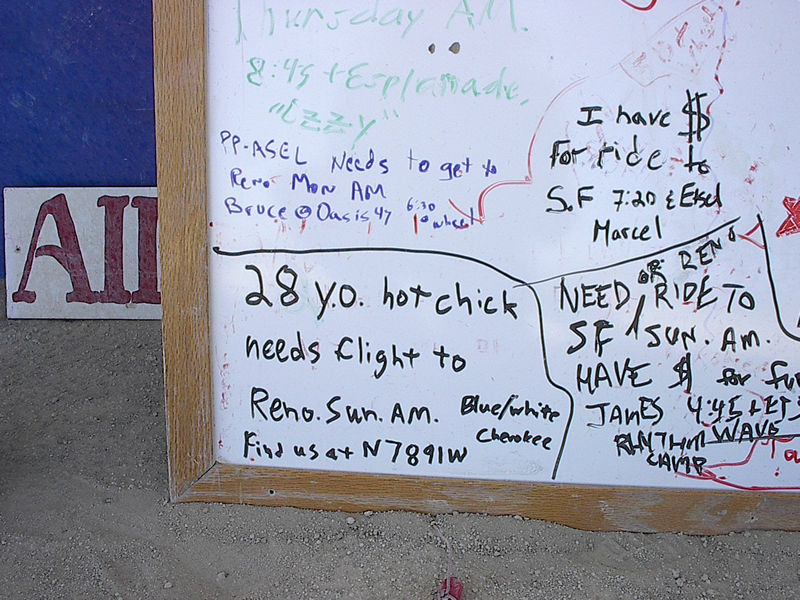 Thursday AM.
8:45 + Esplanade,
"Izzy"
PP-ASEL Needs to get to
Reno Mon AM
Bruce @ Oasis 47 6:30
I have $
for ride to
S.F 7:20 &
Marcel
28 y.o. hot chick
needs flight to
Reno. Sun. AM.
Blue/white
Cherokee
Find us at N7891W
OR RENO
NEED RIDE TO
SF SUN. AM.
HAVE $ for
JAMES 4:45 +
RHYTHM WAVE
CAMP
AI